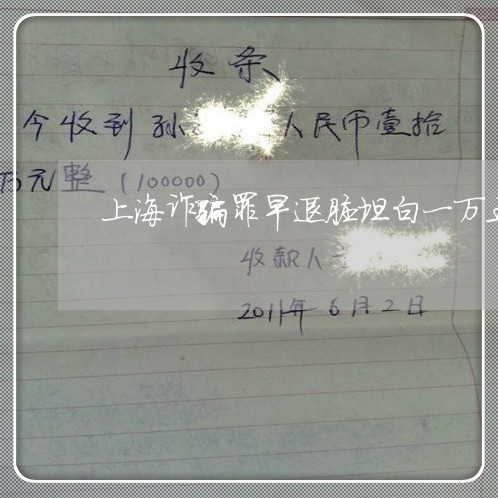 收条
今收到孙 人民币壹拾
万元整(100000)
上海诈骗罪早退脏坦白一万
收款人
2011年6月2日